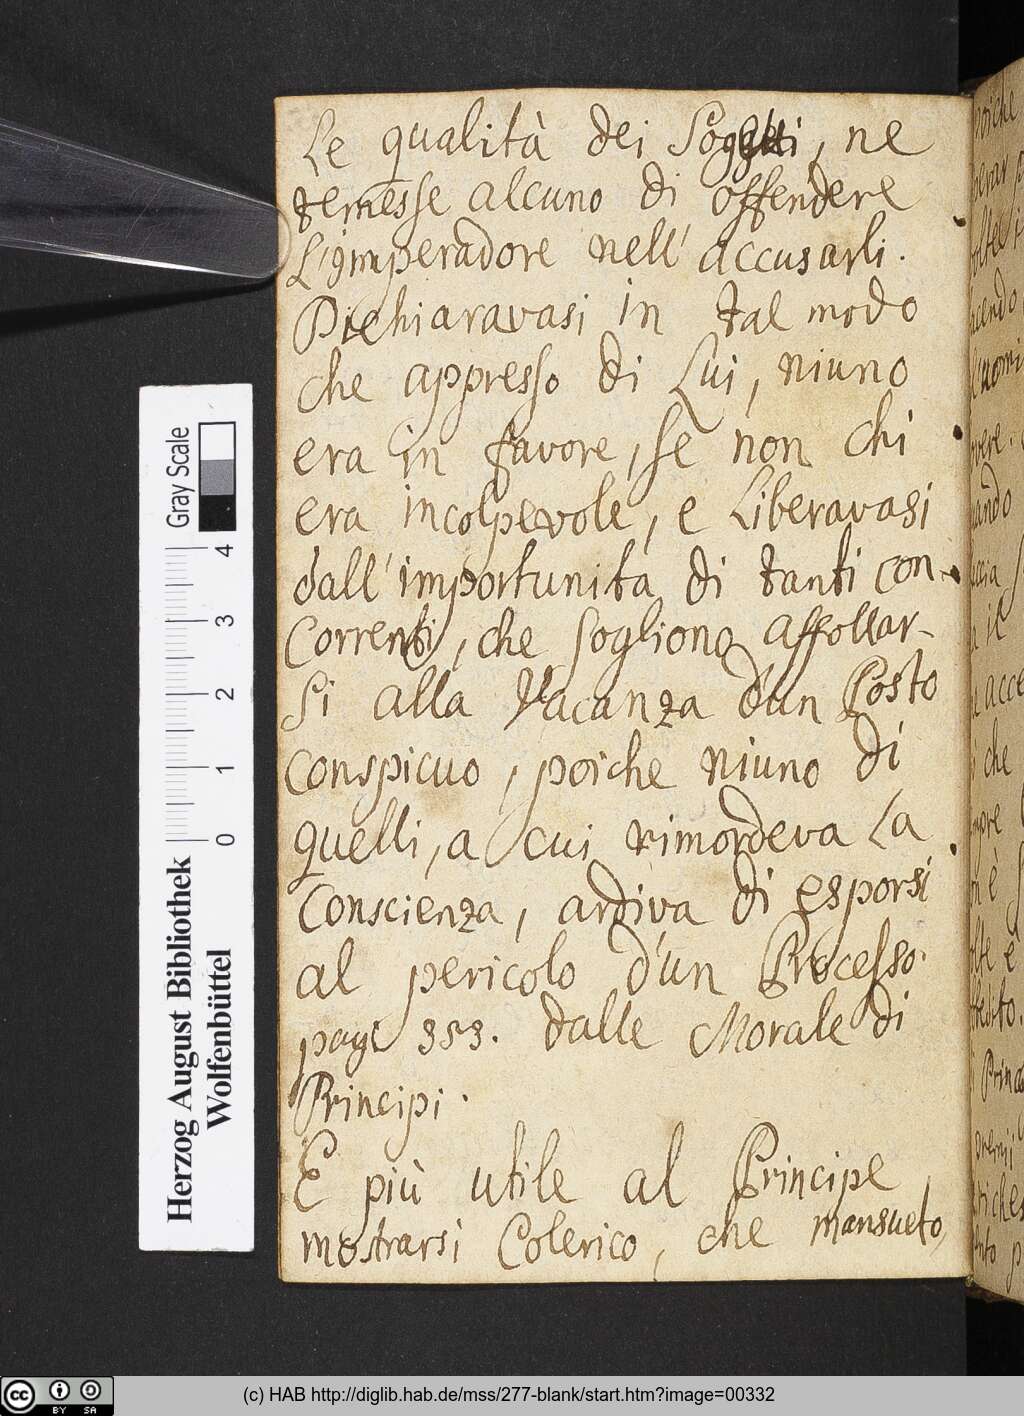 Le qualità dei Sogetti, ne
temesse alcuno di offendere
L'Imperadore nell' accusarli.
Dichiaravasi in tal modo
che appresso di Lui, niuno
era in favore, se non chi
era incolpevole, e Liberavasi
dall' importunita di tanti con-
Correnti, che sogliono affollar-
si alla Vacanza d'un Posto
conspicuo, poiche niuno di
quelli, a cui rimordeva La
Conscienza, ardiva di esporsi
al pericolo d'un Processo.
pagi 353. dalle Morale di
Principi.
E più utile al Principe
mostrarsi Colerico, che mansueto,
Gray Scale
4
3
2
1
0
Herzog August Bibliothek
Wolfenbüttel
cc BY SA
(c) HAB http://diglib.hab.de/mss/277-blank/start.htm?image=00332